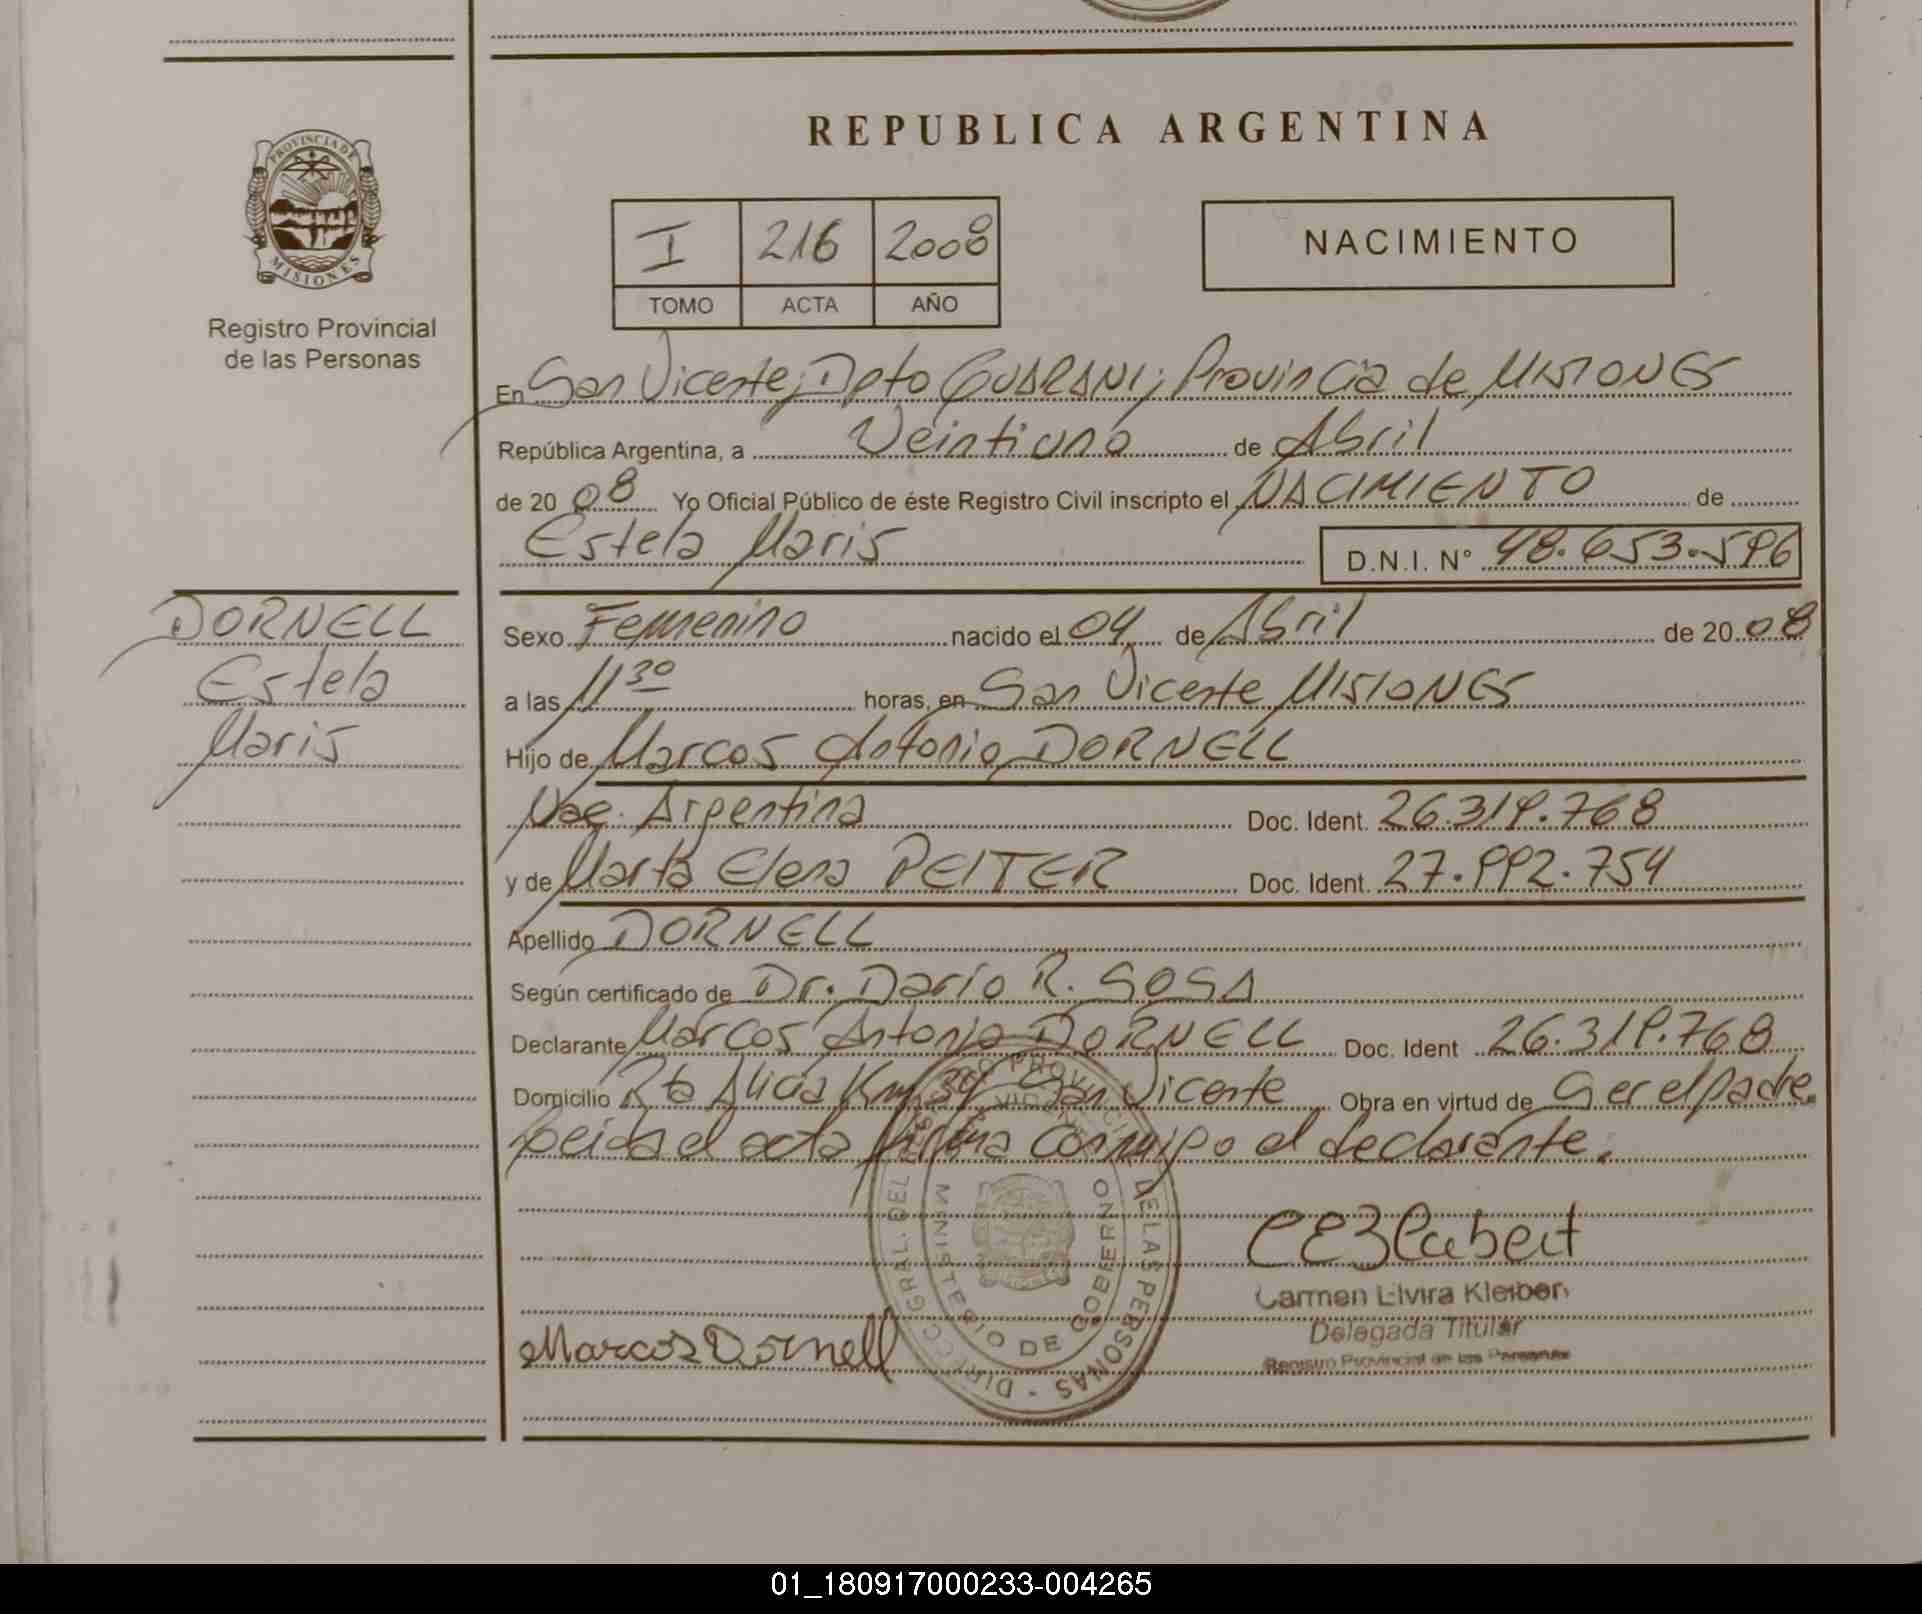 REPUBLICA ARGENTINA
PROVINCIA DE
MISIONES
Registro Provincial
de las Personas
I 216 2008
TOMO ACTA AÑO
NACIMIENTO
En San Vicente, Dpto GUARANI; Provincia de MISIONES
República Argentina, a Veintiuno de Abril
de 20 08 Yo Oficial Público de éste Registro Civil inscripto el NACIMIENTO de
Estela Maris D.N.I. N° 48.653.596
DORNELL
Estela
Maris
Sexo Femenino nacido el 04 de Abril de 20 08
a las 11 30 horas, en San Vicente MISIONES
Hijo de Marcos Antonio DORNELL
Nac. Argentina Doc. Ident. 26.319.768
y de Marta Elena PEITER Doc. Ident. 27.992.754
Apellido DORNELL
Según certificado de Dr. Darío R. SOSA
Declarante Marcos Antonio DORNELL Doc. Ident 26.319.768
Domicilio Rta Alicia Km San Vicente Obra en virtud de Ser el padre.
Leida el acta firma conmigo el declarante.
MINISTERIO DE GOBIERNO
DE LAS PERSONAS
Carmen Elvira Kleiber
Delegada Titular
Registro Provincial de las Personas
Marcos Dornell
01_180917000233-004265